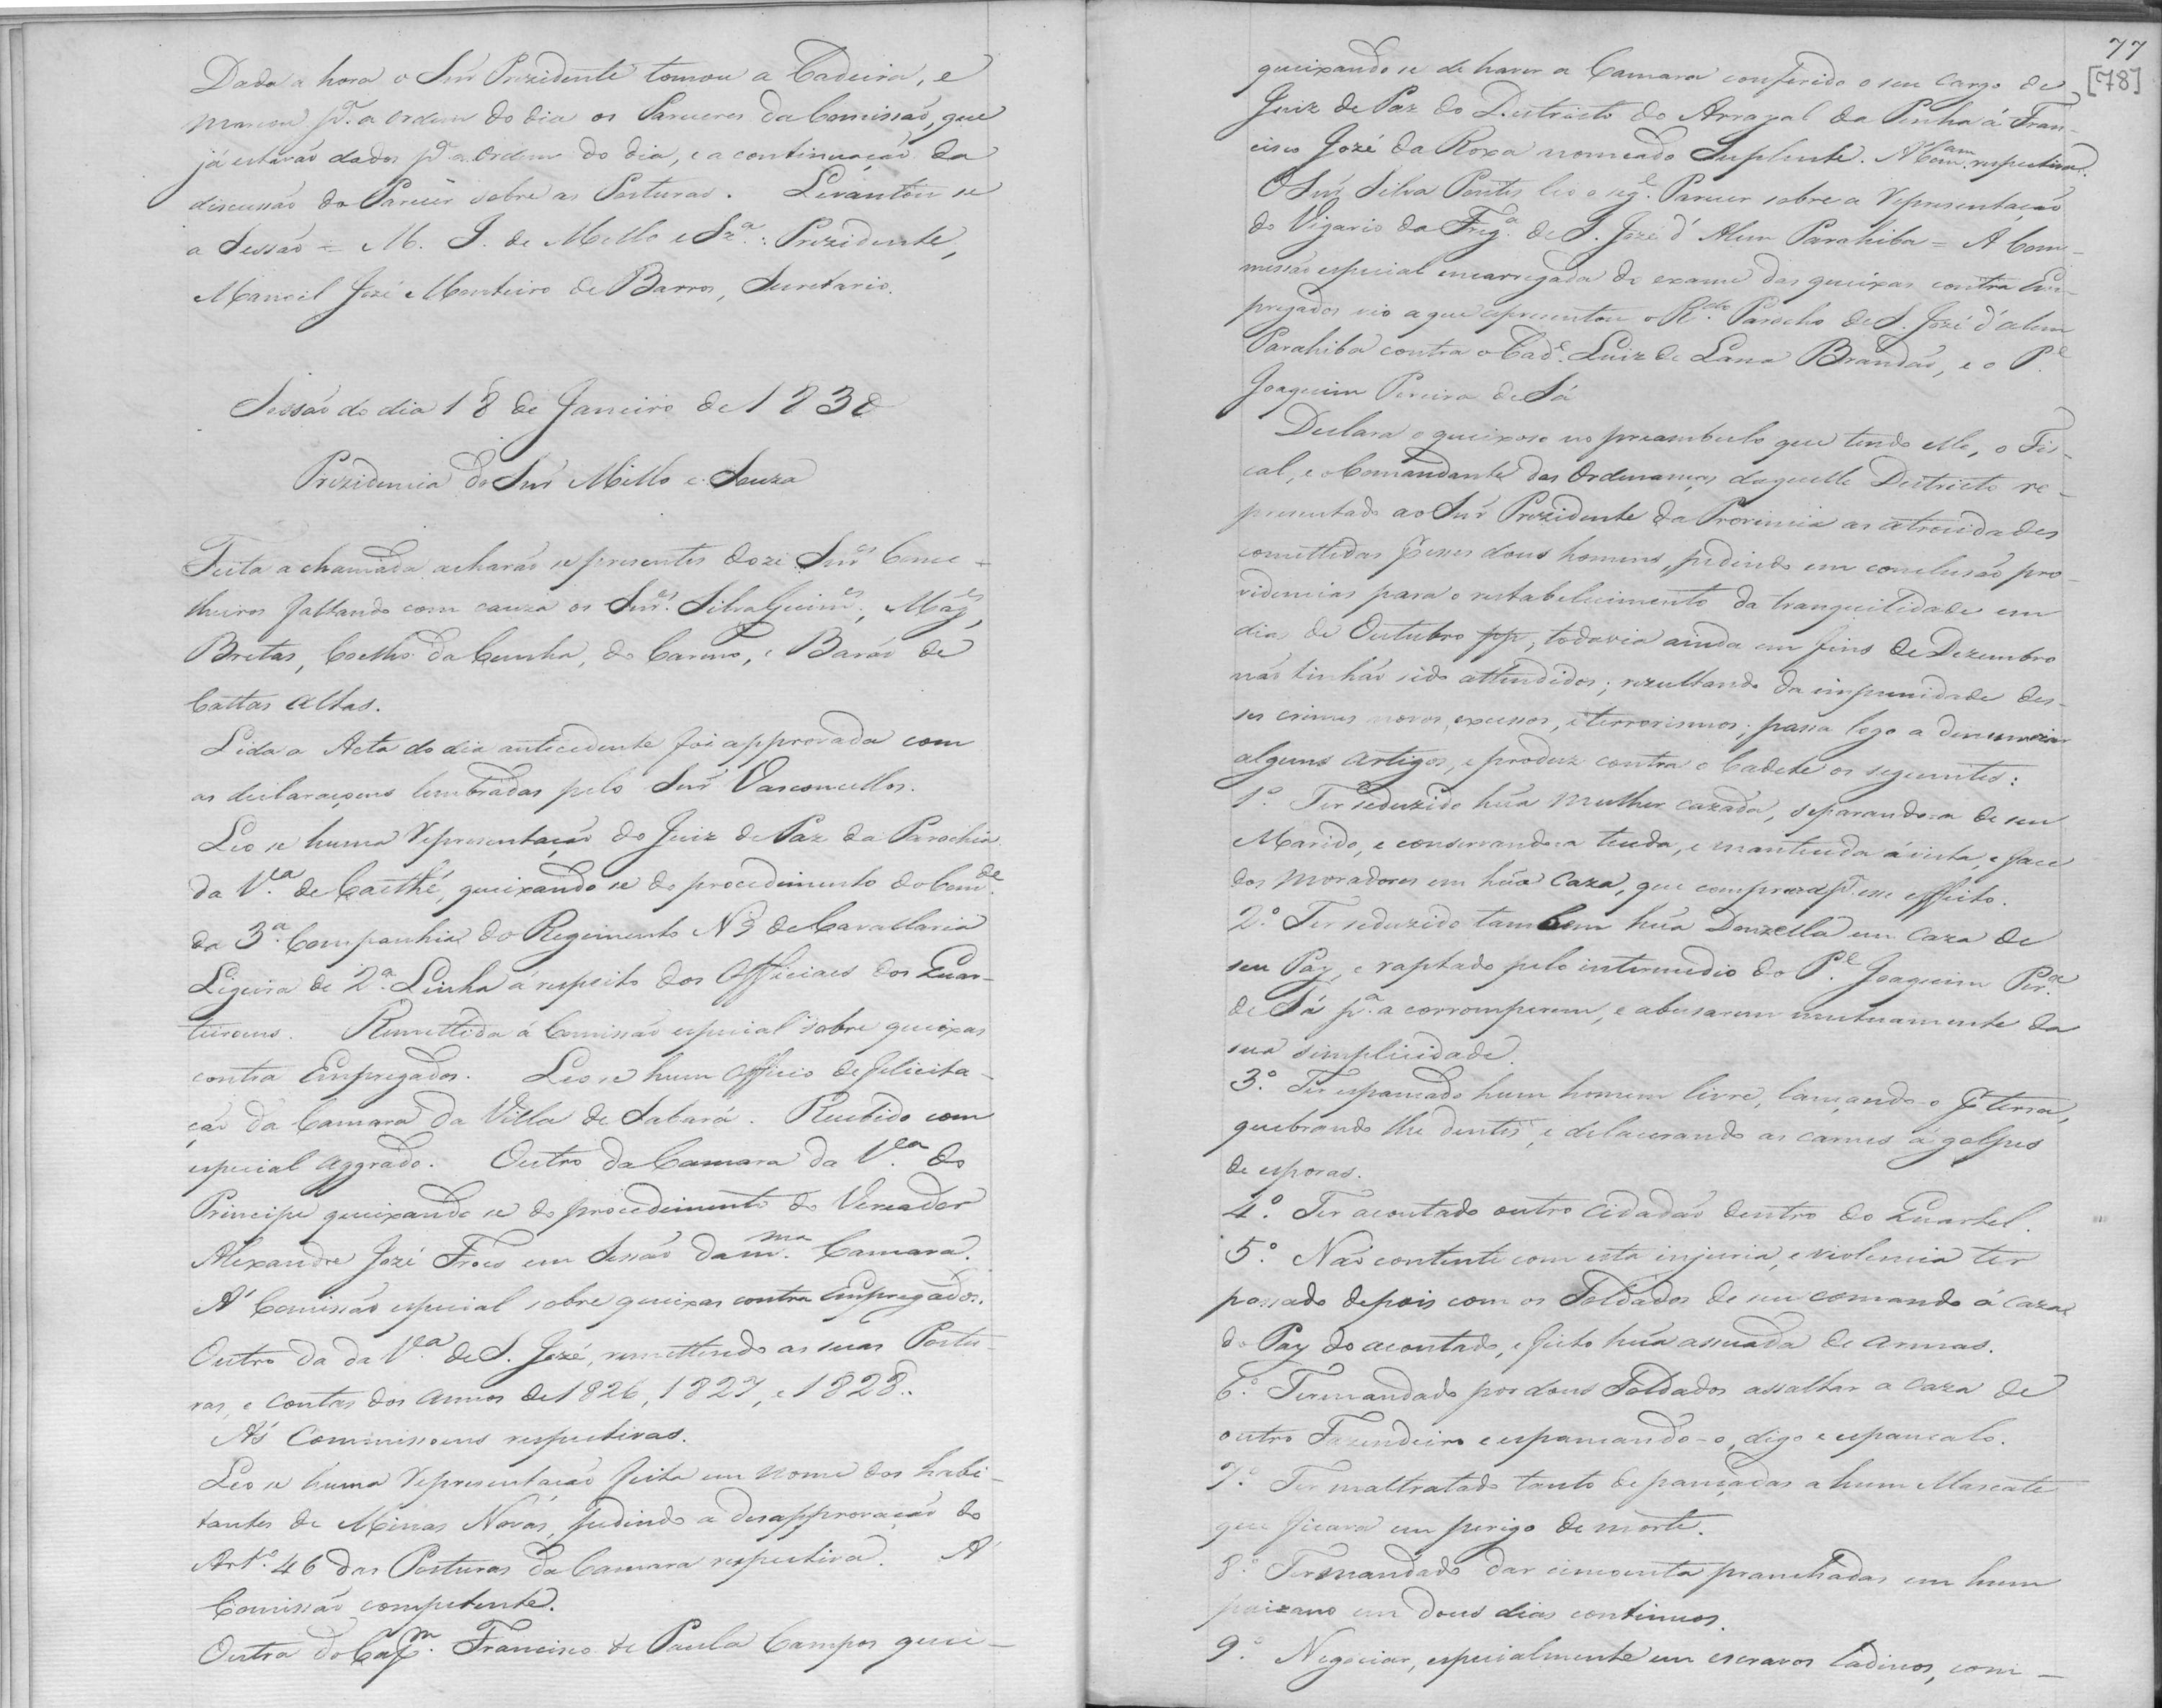 Dada a hora o Snr Prezidente tomou a Cadeira, e
marcou pª. a ordem do dia os Pareceres da Comissão, que
já estavão dados pª a Ordem do dia, e a continuação da
discussão do Parecer sobre as Posturas. Levantou se
a Sessão = M. I. de Mello e Szª.: Prezidente,
Manoel José Monteiro de Barros, Secretario.
Sessão do dia 18 de Janeiro de 1830
Prezidencia do Snr Mello e Souza
Feita a chamada acharão se presentes doze Snres Conce-
lheiros faltando com cauza os Snres. Silva Guimes, Mages,
Bretas, Coelho da Cunha, do Carmo, e Barão de
Cattas Altas.
Lida a Acta do dia antecedente foi approvada com
as declaraçoens lembradas pelo Snr Vasconcellos.
Leo se huma Representação do Juiz de Paz da Parochia
da Vea. de Caethé, queixando se do procedimento do Comde.
da 3ª. Companhia do Regimento N 3 de Cavallaria
Ligeira de 2ª. Linha á respeito dos Officiaes dos Quar-
teiroens. Remettida á Comissão especial sobre queixas
contra Empregados. Leo se hum Officio de felicita-
ção da Camara da Villa de Sabará. Recebido com
especial aggrado. Outro da Camara da Vea. do
Principe queixando se do procedimento do Vereador
Alexandre Jozé Froes em Sessão da mma. Camara.
A' Comissão especial sobre queixas contra Empregados.
Outro da da Vea. de S. José, remettendo as suas Postu-
ras, e contas dos annos de 1826, 1827, e 1828.
A's Commissoens respectivas.
Leo se huma Representação feita em nome dos habi-
tantes de Minas Novas, pedindo a desapprovação do
Arto. 46 das Posturas da Camara respectiva. A'
Comissão competente.
Outra do Capm. Francisco de Paula Campos quei-
77
[78]
queixando se de haver a Camara conferido o seu cargo de
Juiz de Paz do Districto do Arrayal da Penha á Fran-
cisco Jozé da Roxa nomeado Suplente. A' Comam. respectiva.
O Snr Silva Pontes leo o sege. Parecer sobre a Representação
do Vigario da Frega. de S. Jozé d'Alem Parahiba = A Com-
missão especial encarregada do exame das queixas contra Em-
pregados vio a que apresentou o Rdo. Parocho de S. Jozé d'alem
Parahiba contra o Cade. Luiz de Lana Brandão, e o Pe.
Joaquim Pereira de Sá
Declara o queixoso no preambulo que tendo elle, o Fis-
cal, e o Comandante das Ordenanças daquelle Districto re-
presentado ao Snr Prezidente da Provincia as atrocidades
comettidas per esses dous homens, pedindo em conclusão pro-
videncias para o restabelecimento da tranquilidade em
dias de Outubro pp, todavia ainda em fins de Dezembro
não tinhão sido attendidos; rezultando da impunidade des-
ses crimes novos excessos, e terrorismos; passa logo a denunciar
alguns artigos, e produz contra o Cadete os seguintes:
1º. Ter seduzido húa mulher cazada, separando-a de seu
Marido, e conservando-a teuda, e manteuda á vista, e face
dos moradores em húa Caza, que comprara pª. esse effeito.
2º. Ter seduzido tambem húa Donzella em caza de
seu Pay, e raptado pelo intermedio do Pe. Joaquim Pera.
de Sá pª. a corromperem, e abusarem mutuamente da
sua simplicidade.
3º. Ter espancado hum homem livre, lançando-o per terra,
quebrando lhe dentes, e dilacerando as carnes á golpes
de esporas.
4º. Ter acoutado outro cidadão dentro do Quartel.
5º. Não contente com esta injuria, e violencia ter
passado depois com os Soldados de seu comando á caza
do Pay do acoutado, e feito húa assuada de armas.
6º. Ter mandado por dous Soldados assaltar a caza de
outro Fazendeiro e espancando-o, digo e espancalo.
7º. Ter maltratado tanto de pancadas a hum Mascate
que ficara em perigo de morte.
8º. Ter mandado dar cincoenta pranchadas em hum
paizano em dous dias continuos.
9º. Negociar, especialmente em escravos ladinos, com-